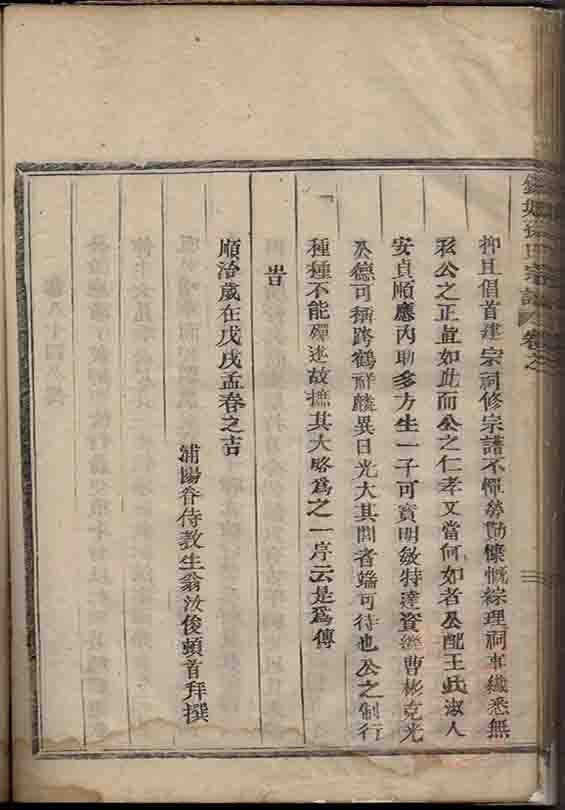 抑且倡首建宗祠修宗譜不憚勞勩慷慨綜理祠事纖悉無
私公之正直如此而公之仁孝又當何如者公配王氏淑人
安貞順應內助多方生一子可賓明敏特達資邁曹彬克光
公德可稱跨鶴祥麟異日光大其閭者端可待也公之制行
種種不能殫述故撫其大略為之一序云是為傳
旹
順治歲在戊戌孟春之吉
浦陽眷侍教生翁汝俊頓首拜撰
氏宗譜
卷之